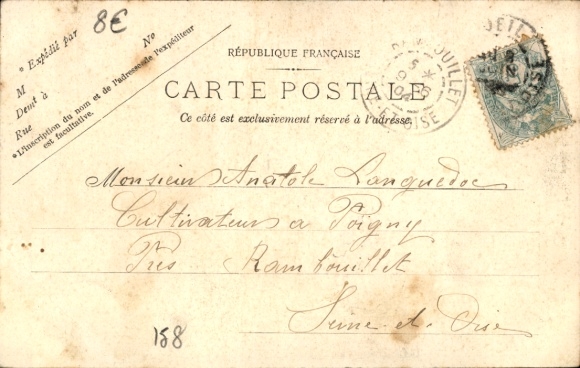 8€
* Expédié par
M
No
Demt à
Rue
*L'inscription du nom et de l'adresse de l'expéditeur
est facultative.
RÉPUBLIQUE FRANÇAISE
CARTE POSTALE
Ce côté est exclusivement réservé à l'adresse.
RAMBOUILLET
5
S.-ET-OISE
Monsieur Anatole Languedoc
Cultivateur a Poigny
Près Rambouillet
Seine-et-Oise
158